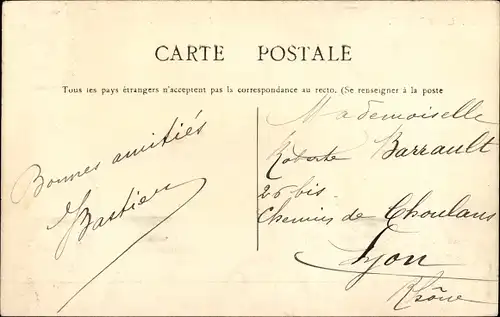 CARTE POSTALE
Tous les pays étrangers n'acceptent pas la correspondance au recto. (Se renseigner à la poste
Bonnes amitiés
Bastien
Mademoiselle
Roberte Barrault
26 bis
Chemin de Choulans
Lyon
Rhône